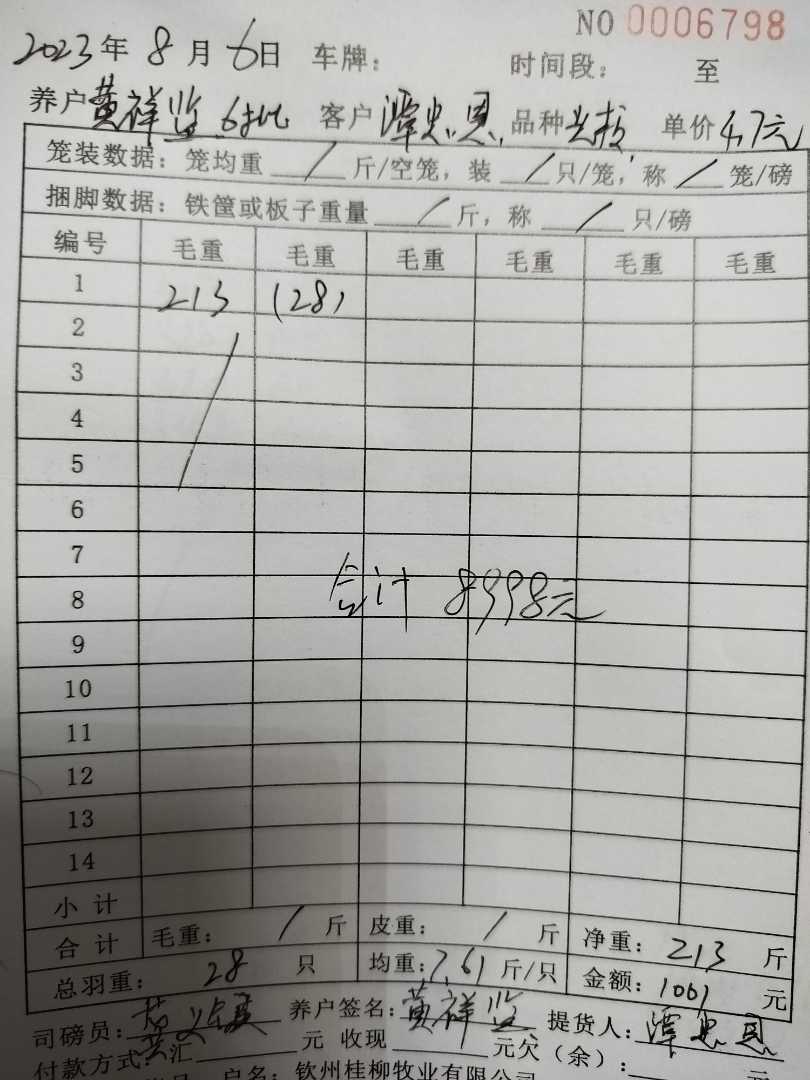 NO 0006798
2023年 8月 6日 车牌： 时间段： 至
养户 黄祥监 6批 客户 潭忠恩 品种 单价 4.7元
笼装数据：笼均重 / 斤/空笼，装 / 只/笼，称 / 笼/磅
捆脚数据：铁筐或板子重量 / 斤，称 / 只/磅
编号 毛重 毛重 毛重 毛重 毛重 毛重
1 213 (28)
2
3
4
5
6
7
8 合计 8998元
9
10
11
12
13
14
小计
合计 毛重： / 斤 皮重： / 斤 净重：213 斤
总羽重： 28 只 均重：7.61 斤/只 金额：1001 元
司磅员： 养户签名：黄祥监 提货人：潭忠恩
付款方式： 汇 元 收现 元欠（余）： 元
户名：钦州桂柳牧业有限公司